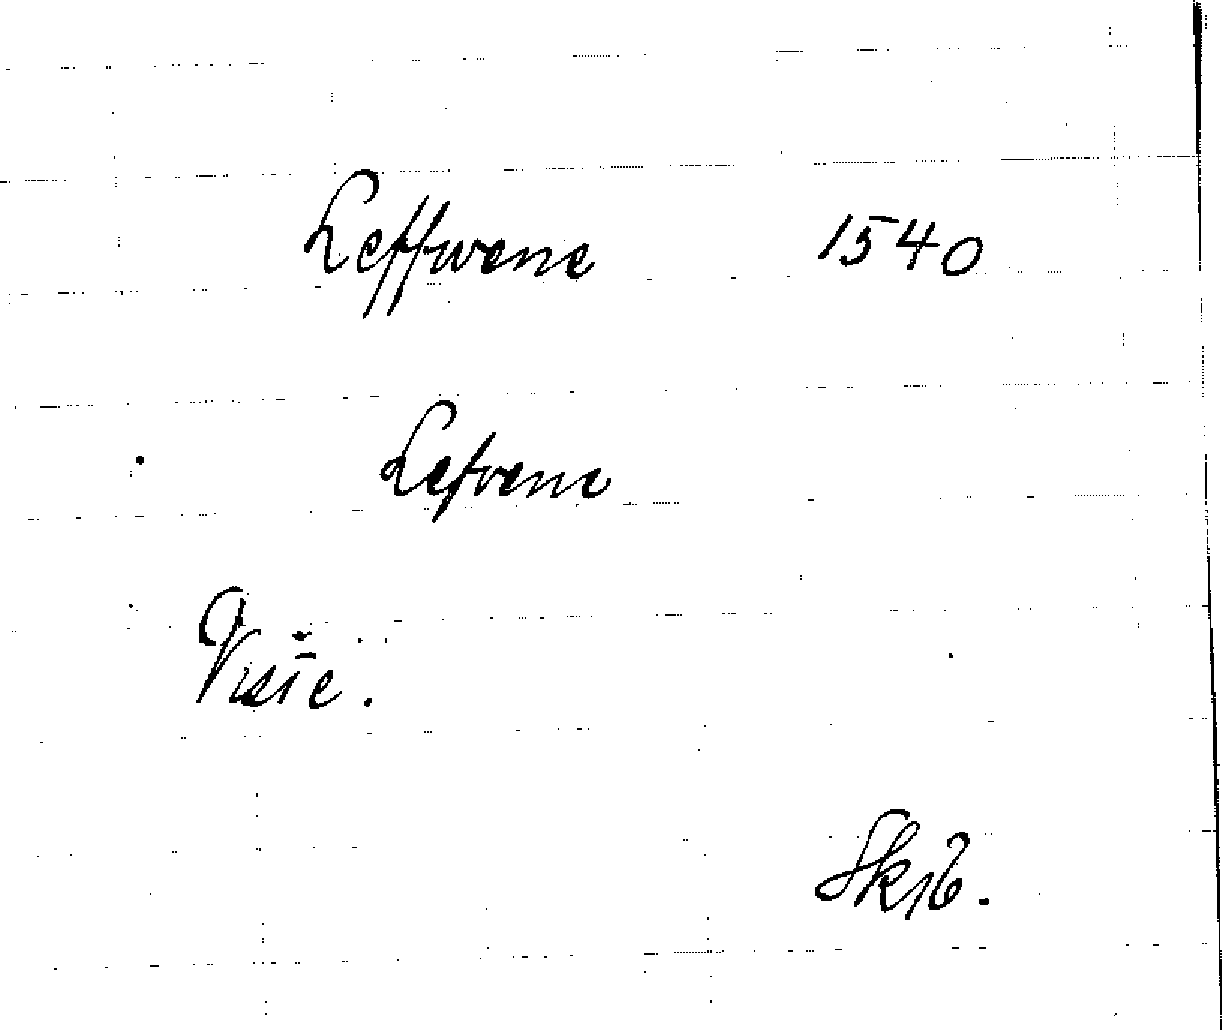 Leffwene 1540
Lefvene
Viste.
Sk 16.